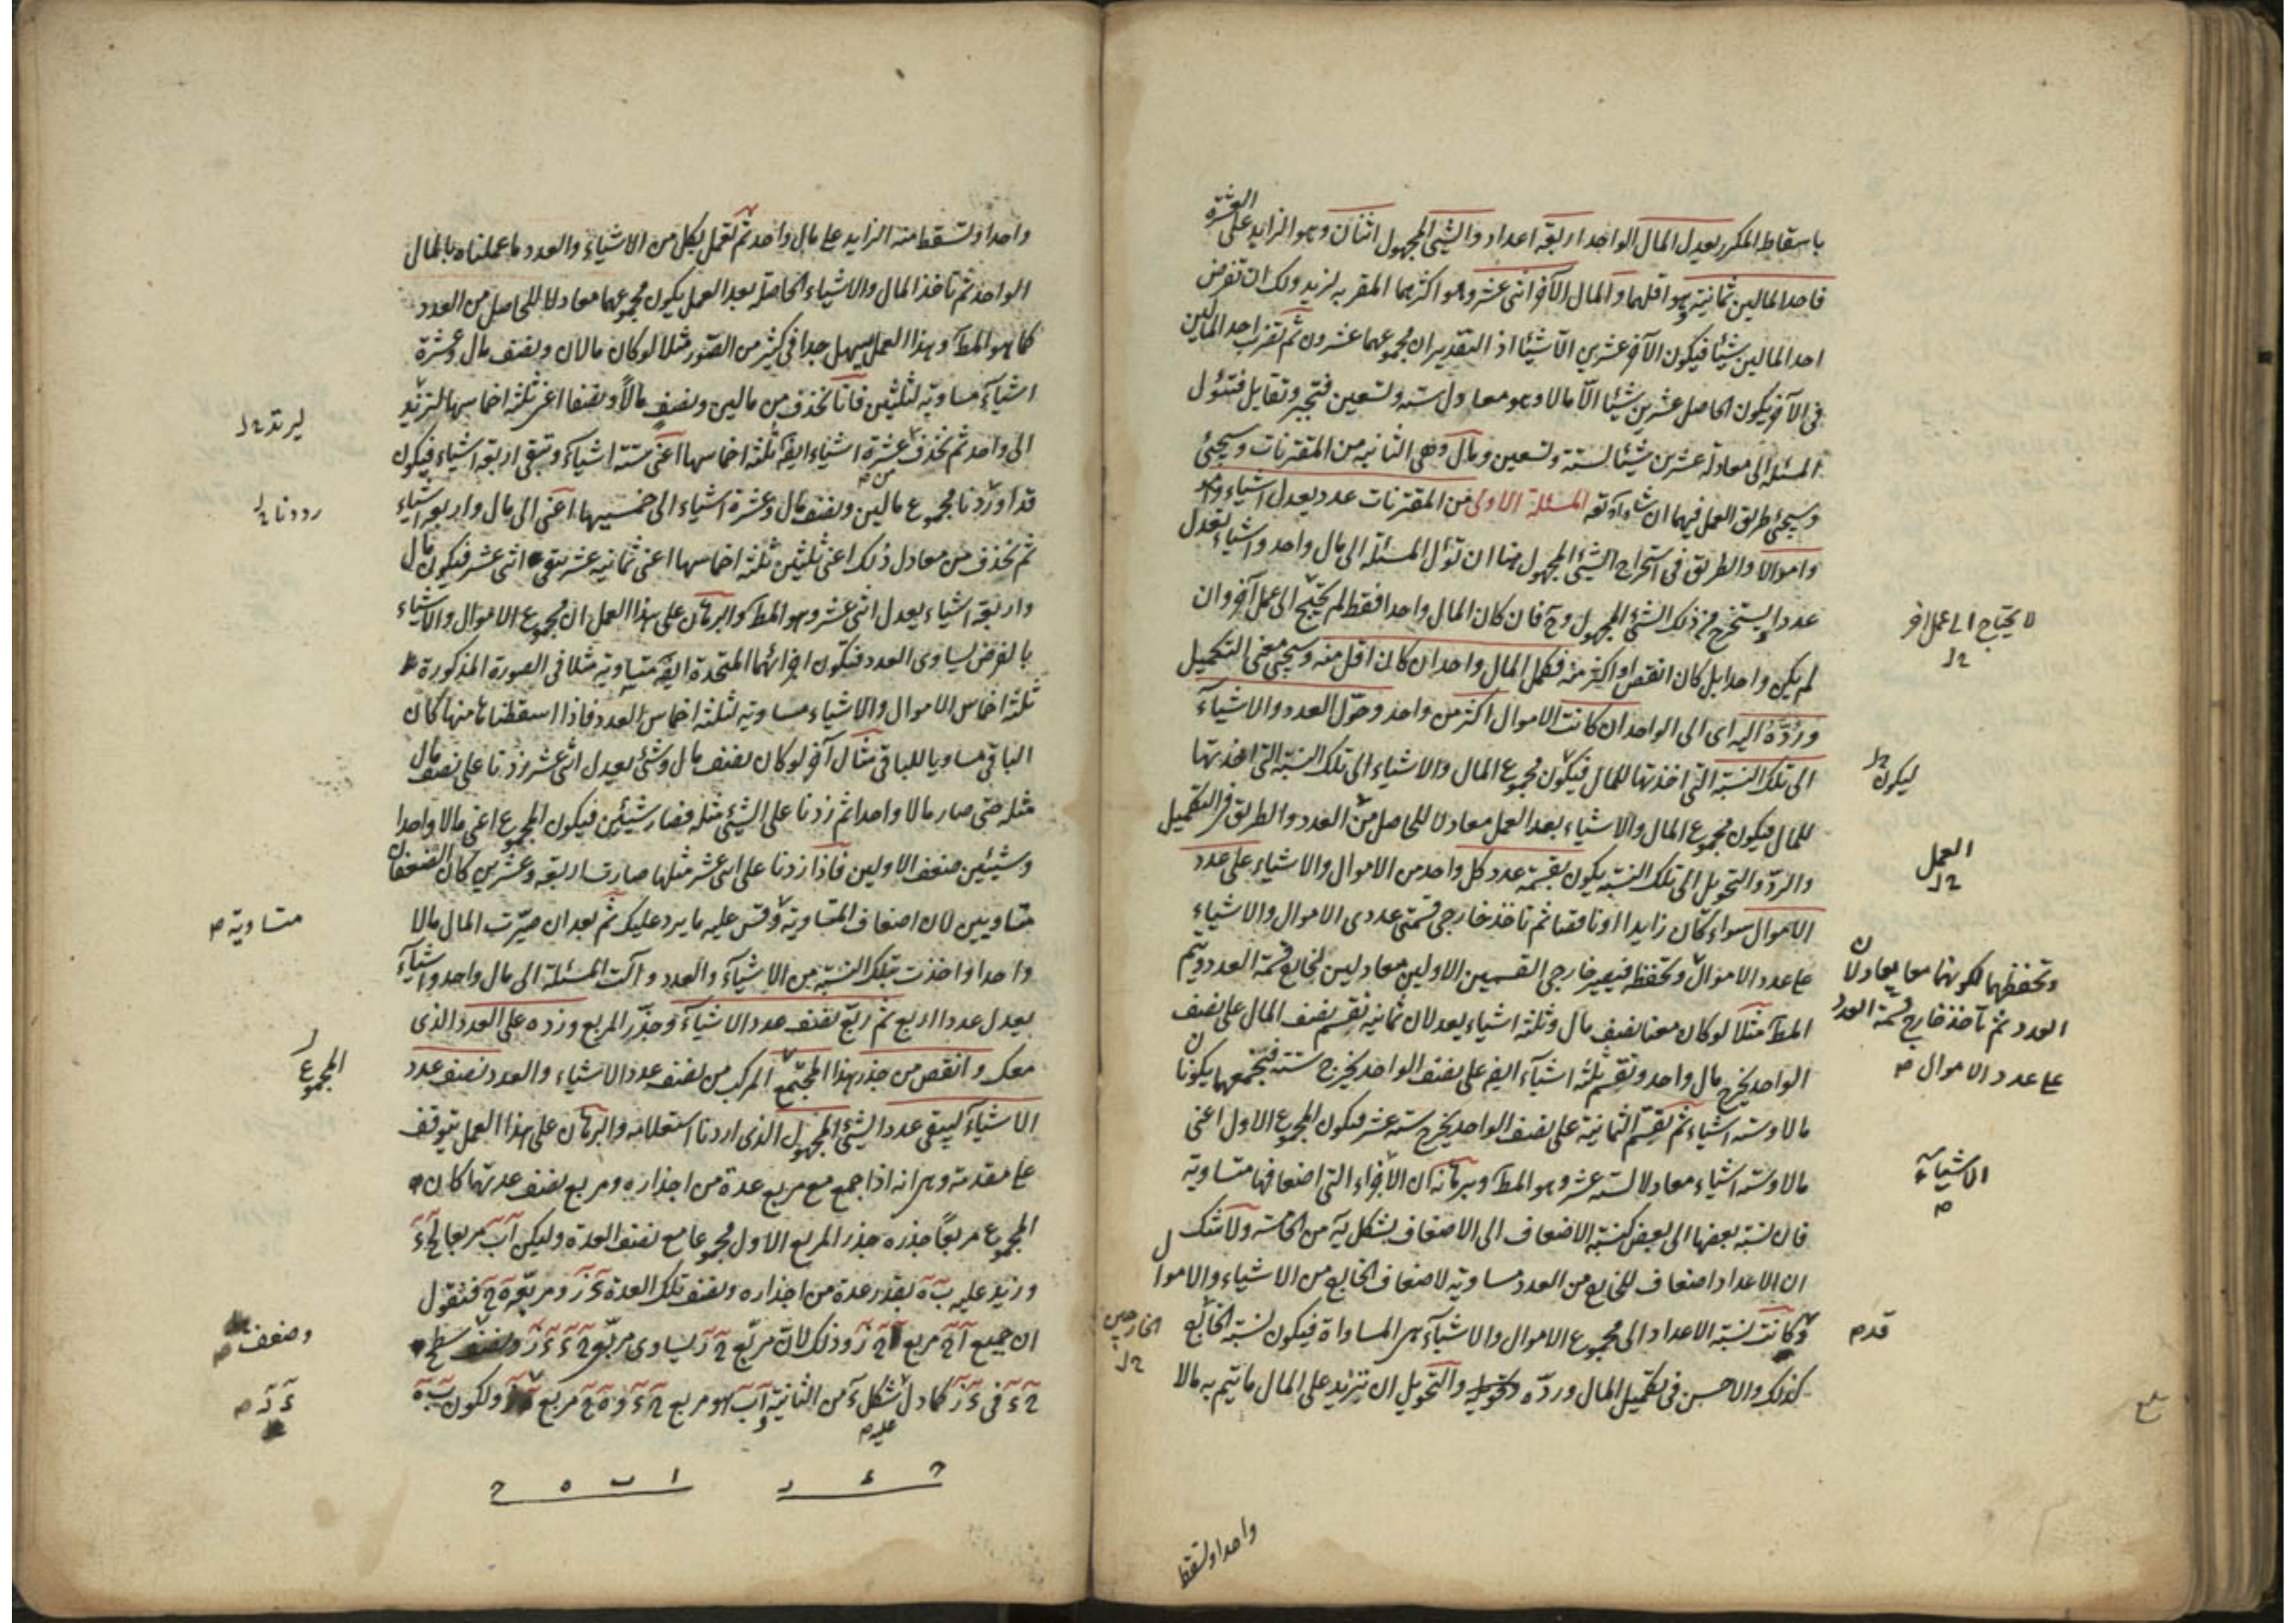 العشرة
باسقاط المكرر يعدل المال الواحد اربعة اعداد والشئ المجهول اثنان وهو الزايد على
فاحد المالين ثمانية وهو اقلهما والمال الآخر اثنى عشر وهو اكثرهما المقر به لزيد ولك ان تفرض
احد المالين شيئا فيكون الآخر عشرين الا شيئا اذ التقدير ان مجموعهما عشرون ثم تضرب احد المالين
فى الآخر يكون الحاصل عشرين شيئا الا مالا وهو معادل لستة وتسعين فتجبر وتقابل فتئول
المسئلة الى معادلة عشرين شيئا لستة وتسعين ومال وهى الثانية من المقترنات وسيجئ
وسيجئ طريق العمل فيهما ان شاء الله تعه المسئلة الاولى من المقترنات عدد يعدل اشياء
واموالا والطريق فى استخراج الشئ المجهول هنا ان تؤل المسئلة الى مال واحد واشياء تعدل
عددا يستخرج منه ذلك الشئ المجهول وح فان كان المال واحدا فقط لم يحتج الى عمل آخر وان
لم يكن واحدا بل كان انقص او اكثر منه فكمل المال واحدا ان كان اقل منه وسيجئ معنى التكميل
ورُدَّهُ اليه اى الى الواحد ان كانت الاموال اكثر من واحد وحوّل العدد والاشياء
الى تلك النسبة التى اخذتها للمال فيكون مجموع المال والاشياء الى تلك النسبة التى اخذتها
للمال فيكون مجموع المال والاشياء بعد العمل معادلا للحاصل من العدد والطريق فى التكميل
والردّ والتحويل الى تلك النسبة يكون بقسمة عدد كل واحد من الاموال والاشياء على عدد
الاموال سواء كان زايدا او ناقصا ثم تاخذ خارجى قسمتى عددى الاموال والاشياء
على عدد الاموال وتحفظه فيصير خارجى القسمين الاولين معادلين لخارج قسمة العدد ويتم
المط مثلا لو كان معنا نصف مال وثلثة اشياء يعدلان ثمانية نقسم نصف المال على نصف
الواحد يخرج مال واحد ونقسم ثلثة اشياء ايض على نصف الواحد يخرج ستة فنجمعهما يكونان
مالا وستة اشياء ثم نقسم الثمانية على نصف الواحد يخرج ستة عشر فيكون المجموع الاول اعنى
مالا وستة اشياء معادلا لستة عشر وهو المط وبرهانه ان الاجزاء التى اضعافها متساوية
فان نسبة بعضها الى بعض كنسبة الاضعاف الى الاضعاف بشكل يه من الخامسة ولا شك
ان الاعداد اضعاف للخارج من العدد مساوية لاضعاف الخارج من الاشياء والاموال
وكانت نسبة الاعداد الى مجموع الاموال والاشياء هى المساواة فيكون نسبة الخارج
كذلك والاحسن فى تكميل المال وردّه وتحويله والتحويل ان تزيد على المال ما يتم به مالا
واحدا وتسقط
لا يحتاج الى عمل آخر
ليكون
العمل
وتحفظهما لكونهما معا يعادلان
العدد ثم تأخذ خارج قسمة العدد
على عدد الاموال ص
الاشياء
ص
قدم
الخارجين
واحدا وتسقط منه الزايد على مال واحد ثم تعمل بكل من الاشياء والعدد ما عملناه بالمال
الواحد ثم تاخذ المال والاشياء الحاصلة بعد العمل يكون مجموعهما معادلا للحاصل من العدد
كما هو المط وهذا العمل يسهل جدا فى كثير من الصور مثلا لو كان مالان ونصف مال وعشرة
اشياء مساوية لثلثين فانا نحذف من مالين ونصف مالا ونصفا اعنى ثلثة اخماسها لترتد
الى واحد ثم نحذف من عشرة اشياء ايض ثلثة اخماسها اعنى ستة اشياء وتبقى اربعة اشياء فيكون
قد اوردنا مجموع مالين ونصف مال وعشرة اشياء الى خمسيهما اعنى الى مال واربعة اشياء
ثم نحذف من معادل ذلك اعنى ثلثين ثلثة اخماسها اعنى ثمانية عشر يبقى اثنى عشر فيكون مال
واربعة اشياء يعدل اثنى عشر وهو المط والبرهان على هذا العمل ان مجموع الاموال والاشياء
بالفرض يساوى العدد فتكون اجزائهما المتحدة ايض متساوية مثلا فى الصورة المذكورة
ثلثة اخماس الاموال والاشياء مساوية لثلثة اخماس العدد فاذا اسقطناها منها كان
الباقى مساويا للباقى مثال آخر لو كان نصف مال وشئ يعدل اثنى عشر زدنا على نصف مال
مثله حتى صار مالا واحدا ثم زدنا على الشئ مثله فصار شيئين فيكون المجموع اعنى مالا واحدا
وشيئين ضعف الاولين فاذا زدنا على اثنى عشر مثلها صارت اربعة وعشرين كان الضعفان
متساويين لان اضعاف المتساوية وقس عليه ما يرد عليك ثم بعد ان صيّرت المال مالا
واحدا واخذت بتلك النسبة من الاشياء والعدد وآلت المسئلة الى مال واحد واشياء
يعدل عددا اربع ثم ربّع نصف عدد الاشياء وخذ المربع وزده على العدد الذى
معك وانقص من جذر هذا المجتمع المركب من نصف عدد الاشياء والعدد نصف عدد
الاشياء ليبقى عدد الشئ المجهول الذى اردنا استعلامه والبرهان على هذا العمل يتوقف
على مقدمة وهى انه اذا جمع مع مربع عدة من اجذاره ومربع نصف عدتها كان
المجموع مربعا جذره جذر المربع الاول مجموعا مع نصف العدة وليكن اب مربعا لح ء
ونزيد عليه ب ه بقدر عدة من اجذاره ونصف تلك العدة ء ز ومربعه ه ح فنقول
ان جميع ا ح مربع ح ز وذلك لان مربع ح ز يساوى مربع ح ء ء ز
ح ء فى ء ز كما دل عليه شكل ء من الثانية و اب هو مربع ح ء و ه ح مربع ء ز ولكون ب ه
ليرتد
رددنا
متساوية ص
المجموع
وضعف
ء ز ص
ح ء ز
ا ب ه ح